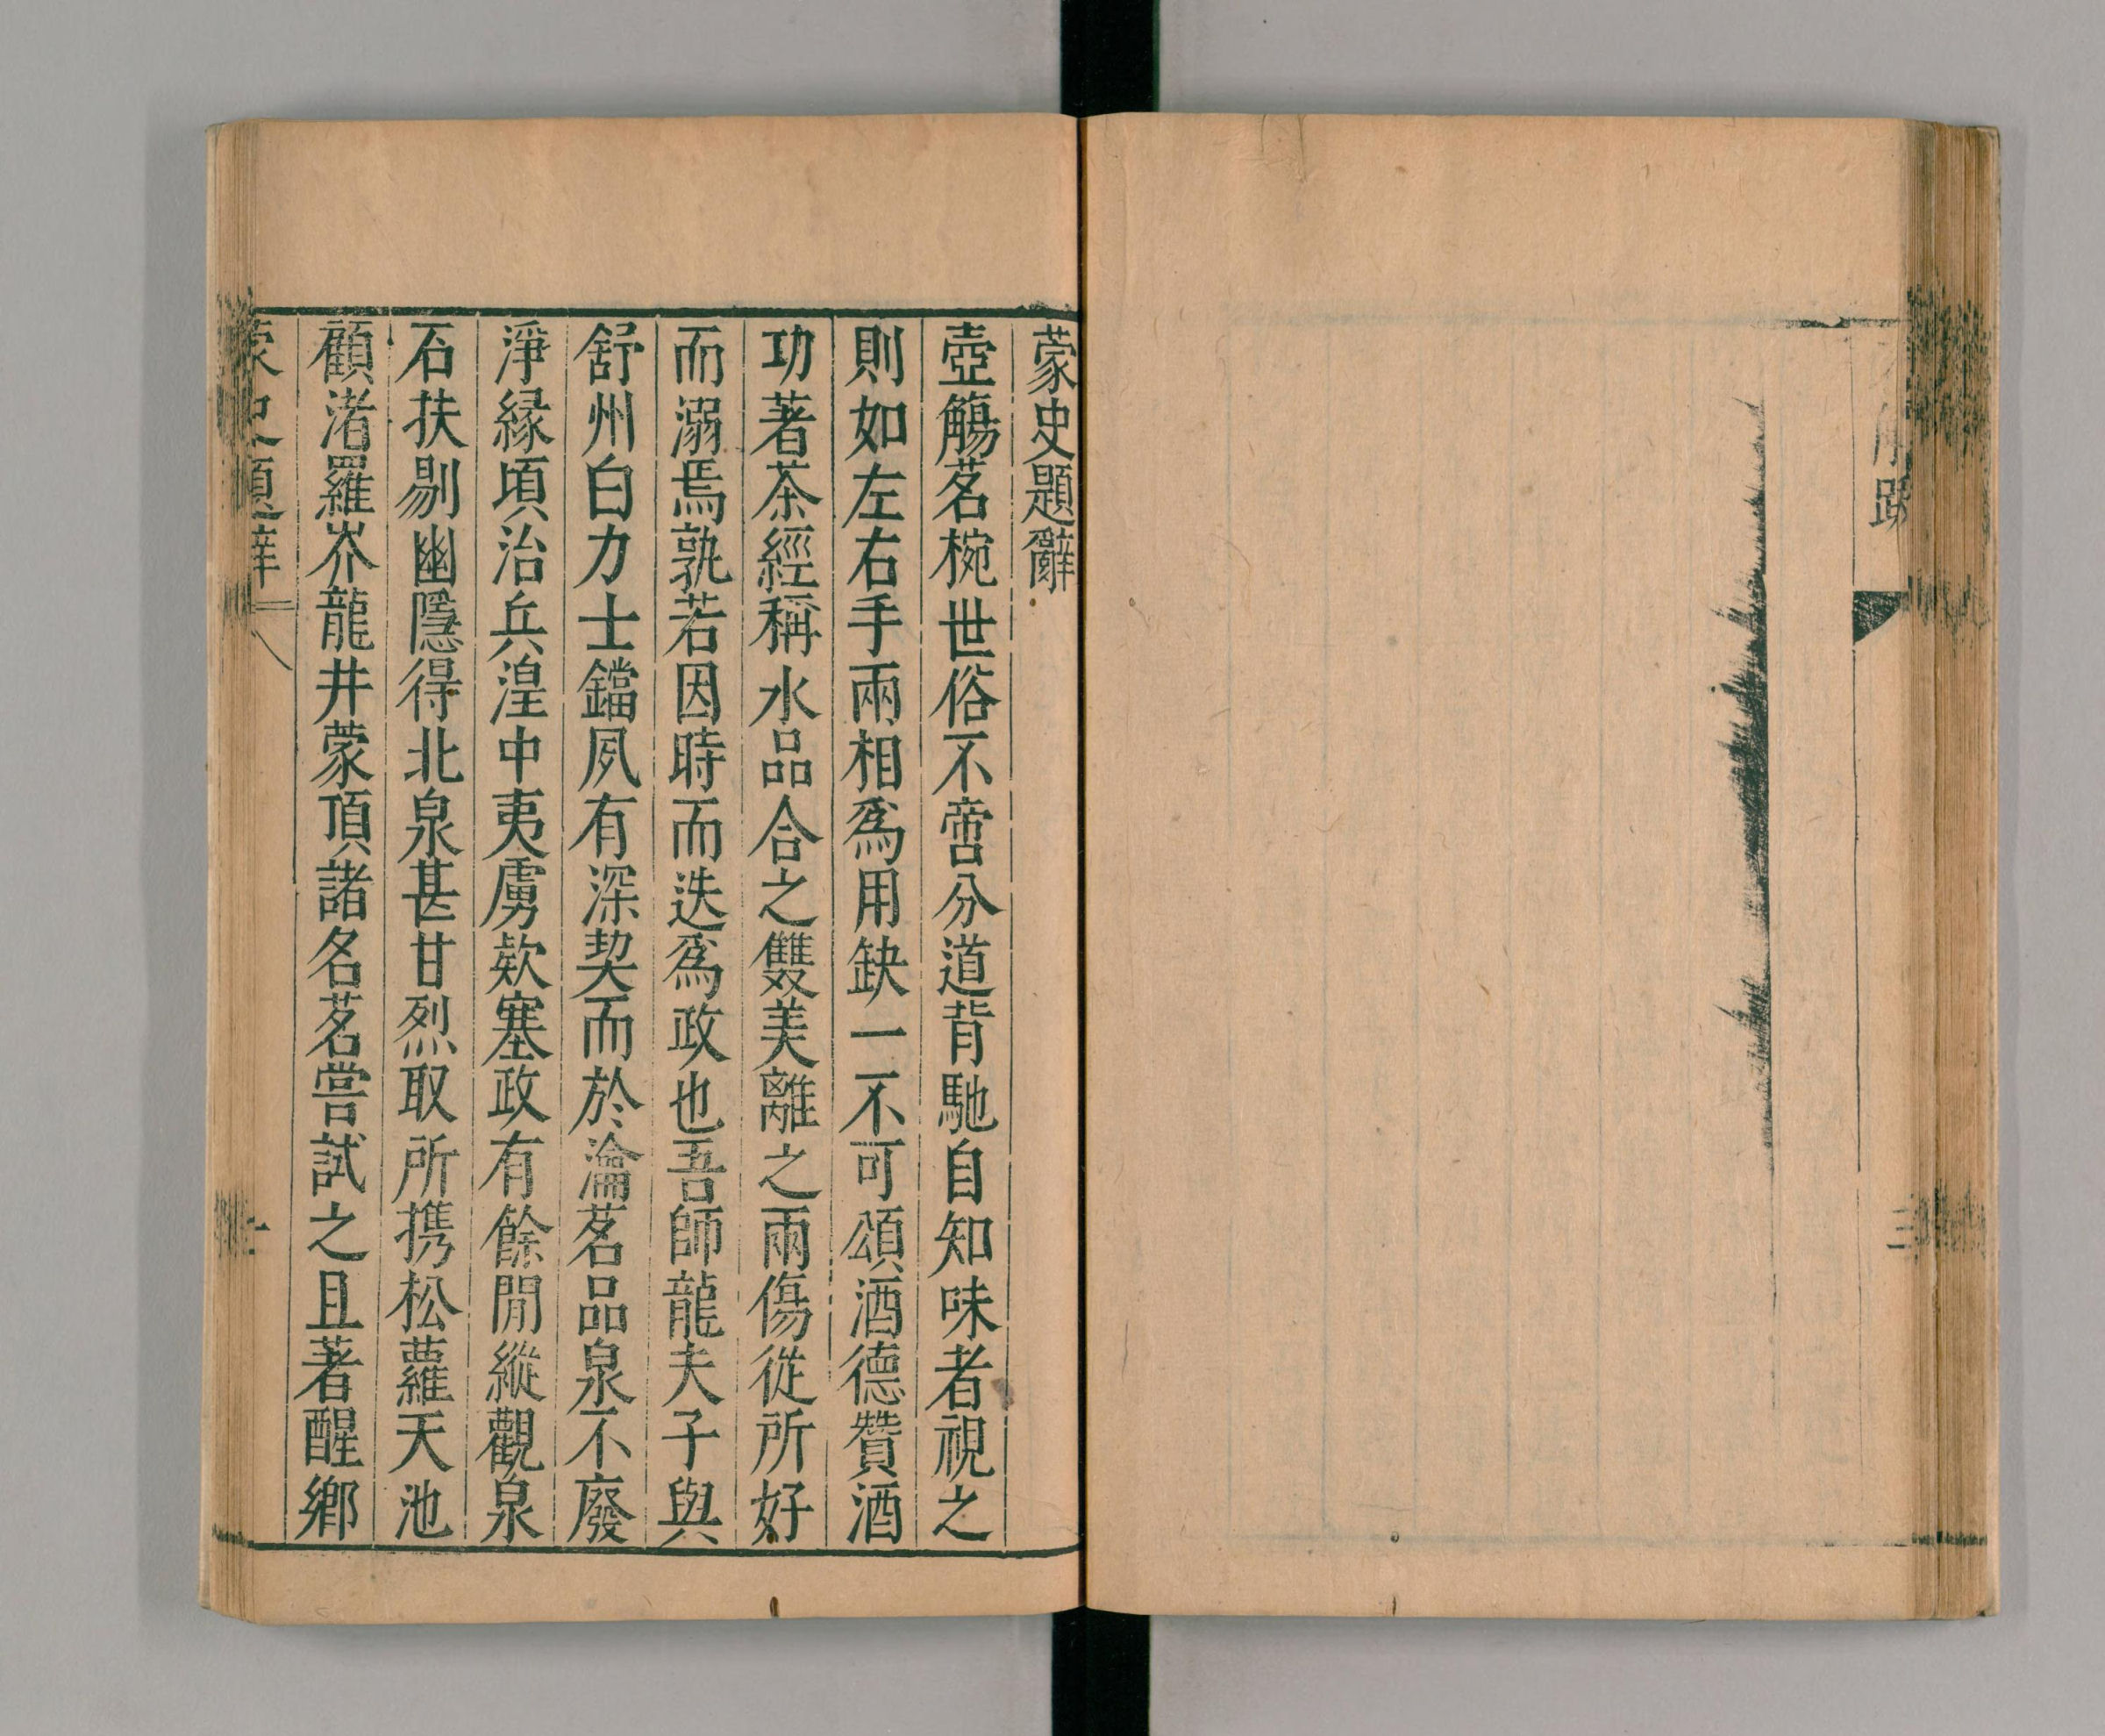 跋
三
蒙史題辭
壺觴茗椀世俗不啻分道背馳自知味者視之
則如左右手兩相爲用缺一不可頌酒德贊酒
功著茶經稱水品合之雙美離之兩傷從所好
而溺焉孰若因時而迭爲政也吾師龍夫子與
舒州白力士鐺夙有深契而於瀹茗品泉不廢
淨緣頃治兵湟中夷虜欵塞政有餘閒縱觀泉
石扶剔幽隱得北泉甚甘烈取所携松蘿天池
顧渚羅岕龍井蒙頂諸名茗嘗試之且著醒鄉
蒙史題辭